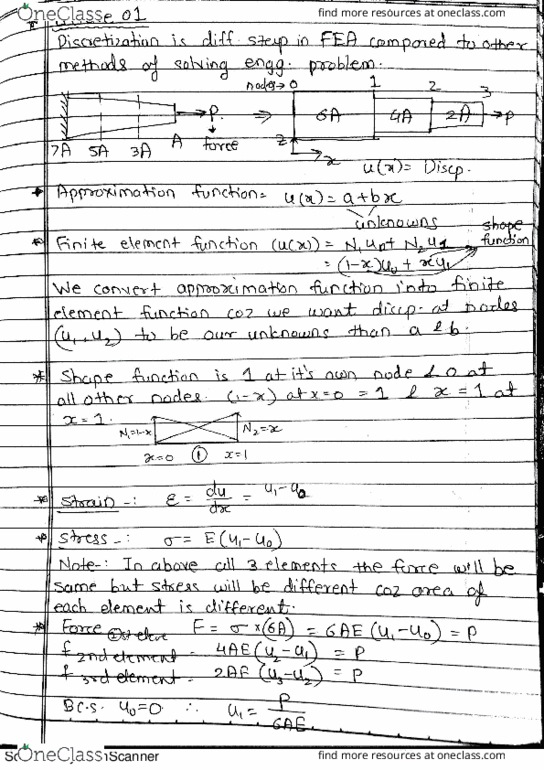 OneClass
find more resources at oneclass.com
01
Discretization is diff. step in FEA compared to other
methods of solving engg. problem.
nodes→ 0 1 2 3
P. ⇒ 6A 4A 2A →P
7A 5A 3A A force
z x
u(x) = Discp.
Approximation function = u(x) = a+bx
unknowns
shape function
Finite element function (u(x)) = N₁u₀ + N₂u₁
= (1-x)u₀ + xu₁
We convert approximation function into finite
element function coz we want discp. at nodes
(u₁, u₂) to be our unknowns than a & b.
Shape function is 1 at it's own node & 0 at
all other nodes. (1-x) at x=0 = 1 & x = 1 at
x = 1.
N₁=1-x N₂=x
x=0 ① x=1
Strain -: ε = du/dx = u₁-u₀
Stress -: σ = E(u₁-u₀)
Note-: In above all 3 elements the force will be
same but stress will be different coz area of
each element is different.
Force F = σ×(6A) = 6AE(u₁-u₀) = P
f 2nd element - 4AE(u₂-u₁) = P
f 3rd element - 2AE(u₃-u₂) = P
B.C.S. u₀=0 ∴ u₁ = P/6AE
OneClass
Scanner
find more resources at oneclass.com